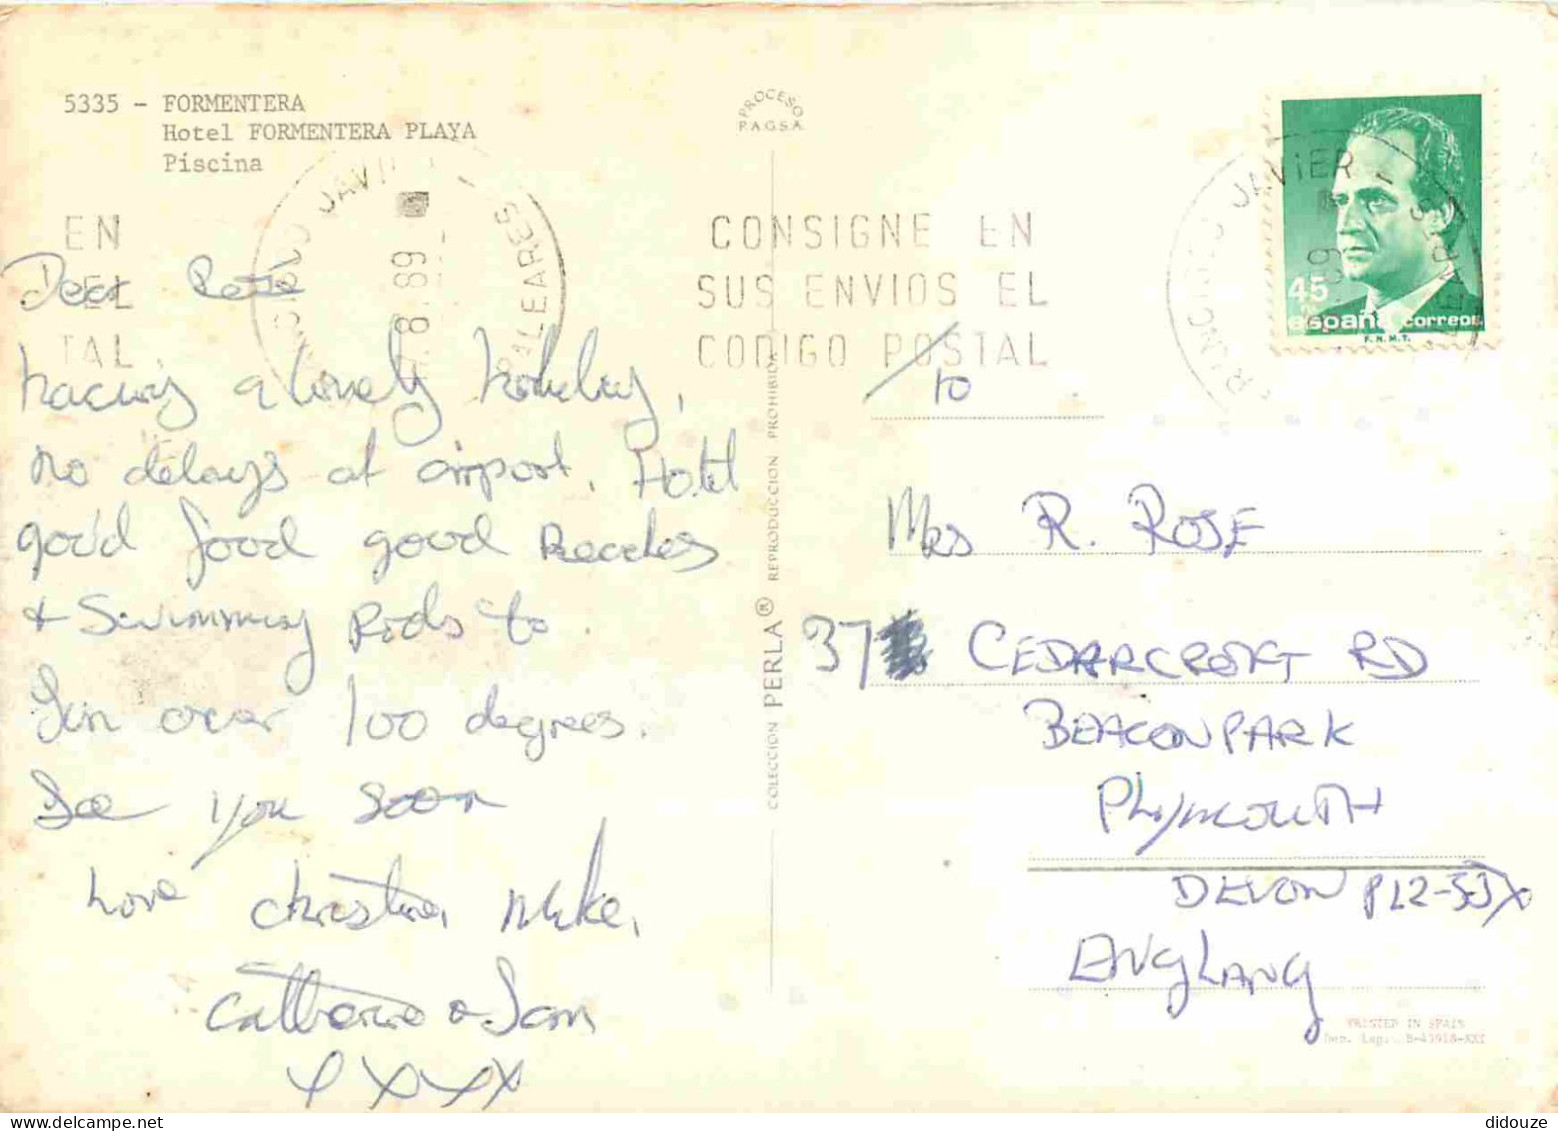 5335 - FORMENTERA
Hotel FORMENTERA PLAYA
Piscina
PROCESO
P.A.G.S.A.
EN
EL
TAL
JAVIER
8.89
BALEARES
CONSIGNE EN
SUS ENVIOS EL
CODIGO POSTAL
JAVIER
45
españa correos
F.N.M.T.
Dear Rose
having a lovely holiday,
no delays at airport. Hotel
good food good Beaches
& Swimming Pools to.
Sun over 100 degrees.
See you soon
Love Christine, Mike,
Catherine & Ian
XXXX
COLECCION PERLA® REPRODUCCION PROHIBIDA
to
Mrs R. ROSE
37 CEDARCROFT RD
BEACON PARK
PLYMOUTH
DEVON PL2-3JX
ENGLAND
PRINTED IN SPAIN
Dep. Leg. B-43918-XXI
didouze